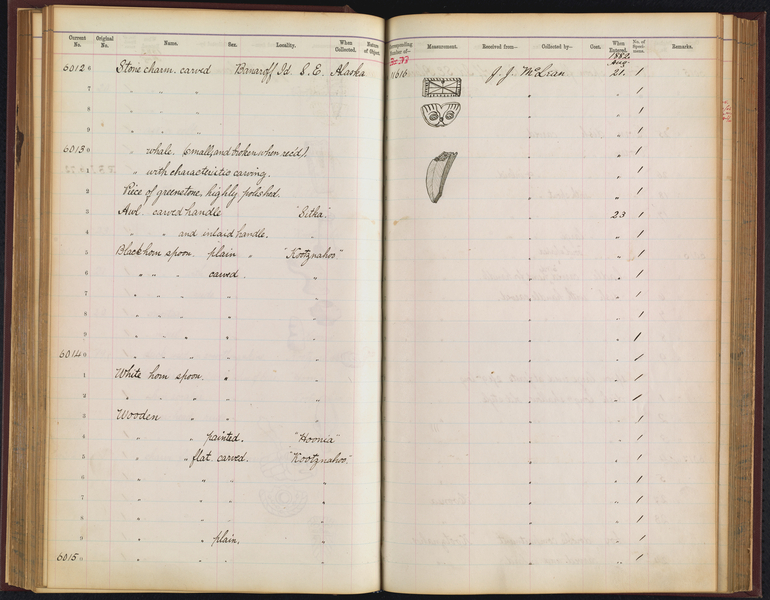 Current No. Original No. Name. Sex. Locality. When Collected. Nature of Object. Corresponding Number of— Measurement. Received from— Collected by— Cost. When Entered. No. of Specimens. Remarks.
1882
Aug
60120 Stone charm. carved Baranoff Id. S. E. Alaska 11616 J. J. McLean 21. 1
7 " " " " " 1
8 " " " " " 1
9 " " " " " 1
60130 " whale. (small, and broken when rec'd). " " 1
1 " with characteristic carving. " " 1
2 Piece of greenstone, highly polished. " " 1
3 Awl. carved handle "Sitka". " 23 1
4 " " and inlaid handle. " " " 1
5 Black horn spoon. plain " "Kootznahoo" " " 1
6 " " " carved. " " " 1
7 " " " " " " " 1
8 " " " " " " " 1
9 " " " " " " " 1
60140 " " " " " " " 1
1 White horn spoon. " " " " 1
2 " " " " " " " 1
3 Wooden " " " " " 1
4 " " painted. "Hoonia" " " 1
5 " " flat carved. "Kootznahoo". " " 1
6 " " " " " " 1
7 " " " " " " 1
8 " " " " " " 1
9 " " plain. " " " 1
60150 " " " " " " 1